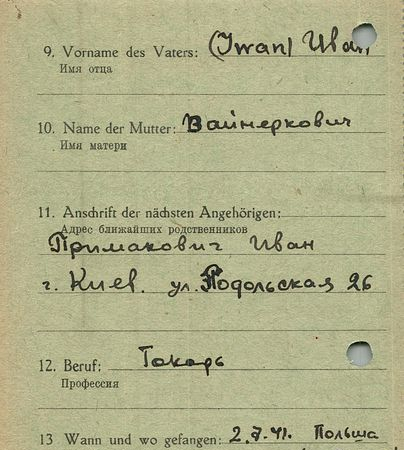 9. Vorname des Vaters: (Iwan) Иван
Имя отца
10. Name der Mutter: Вайнеркович
Имя матери
11. Anschrift der nächsten Angehörigen:
Адрес ближайших родственников
Примакович Иван
г. Киев. ул. Подольская 26
12. Beruf: Токарь
Профессия
13 Wann und wo gefangen: 2.7.41. Польша